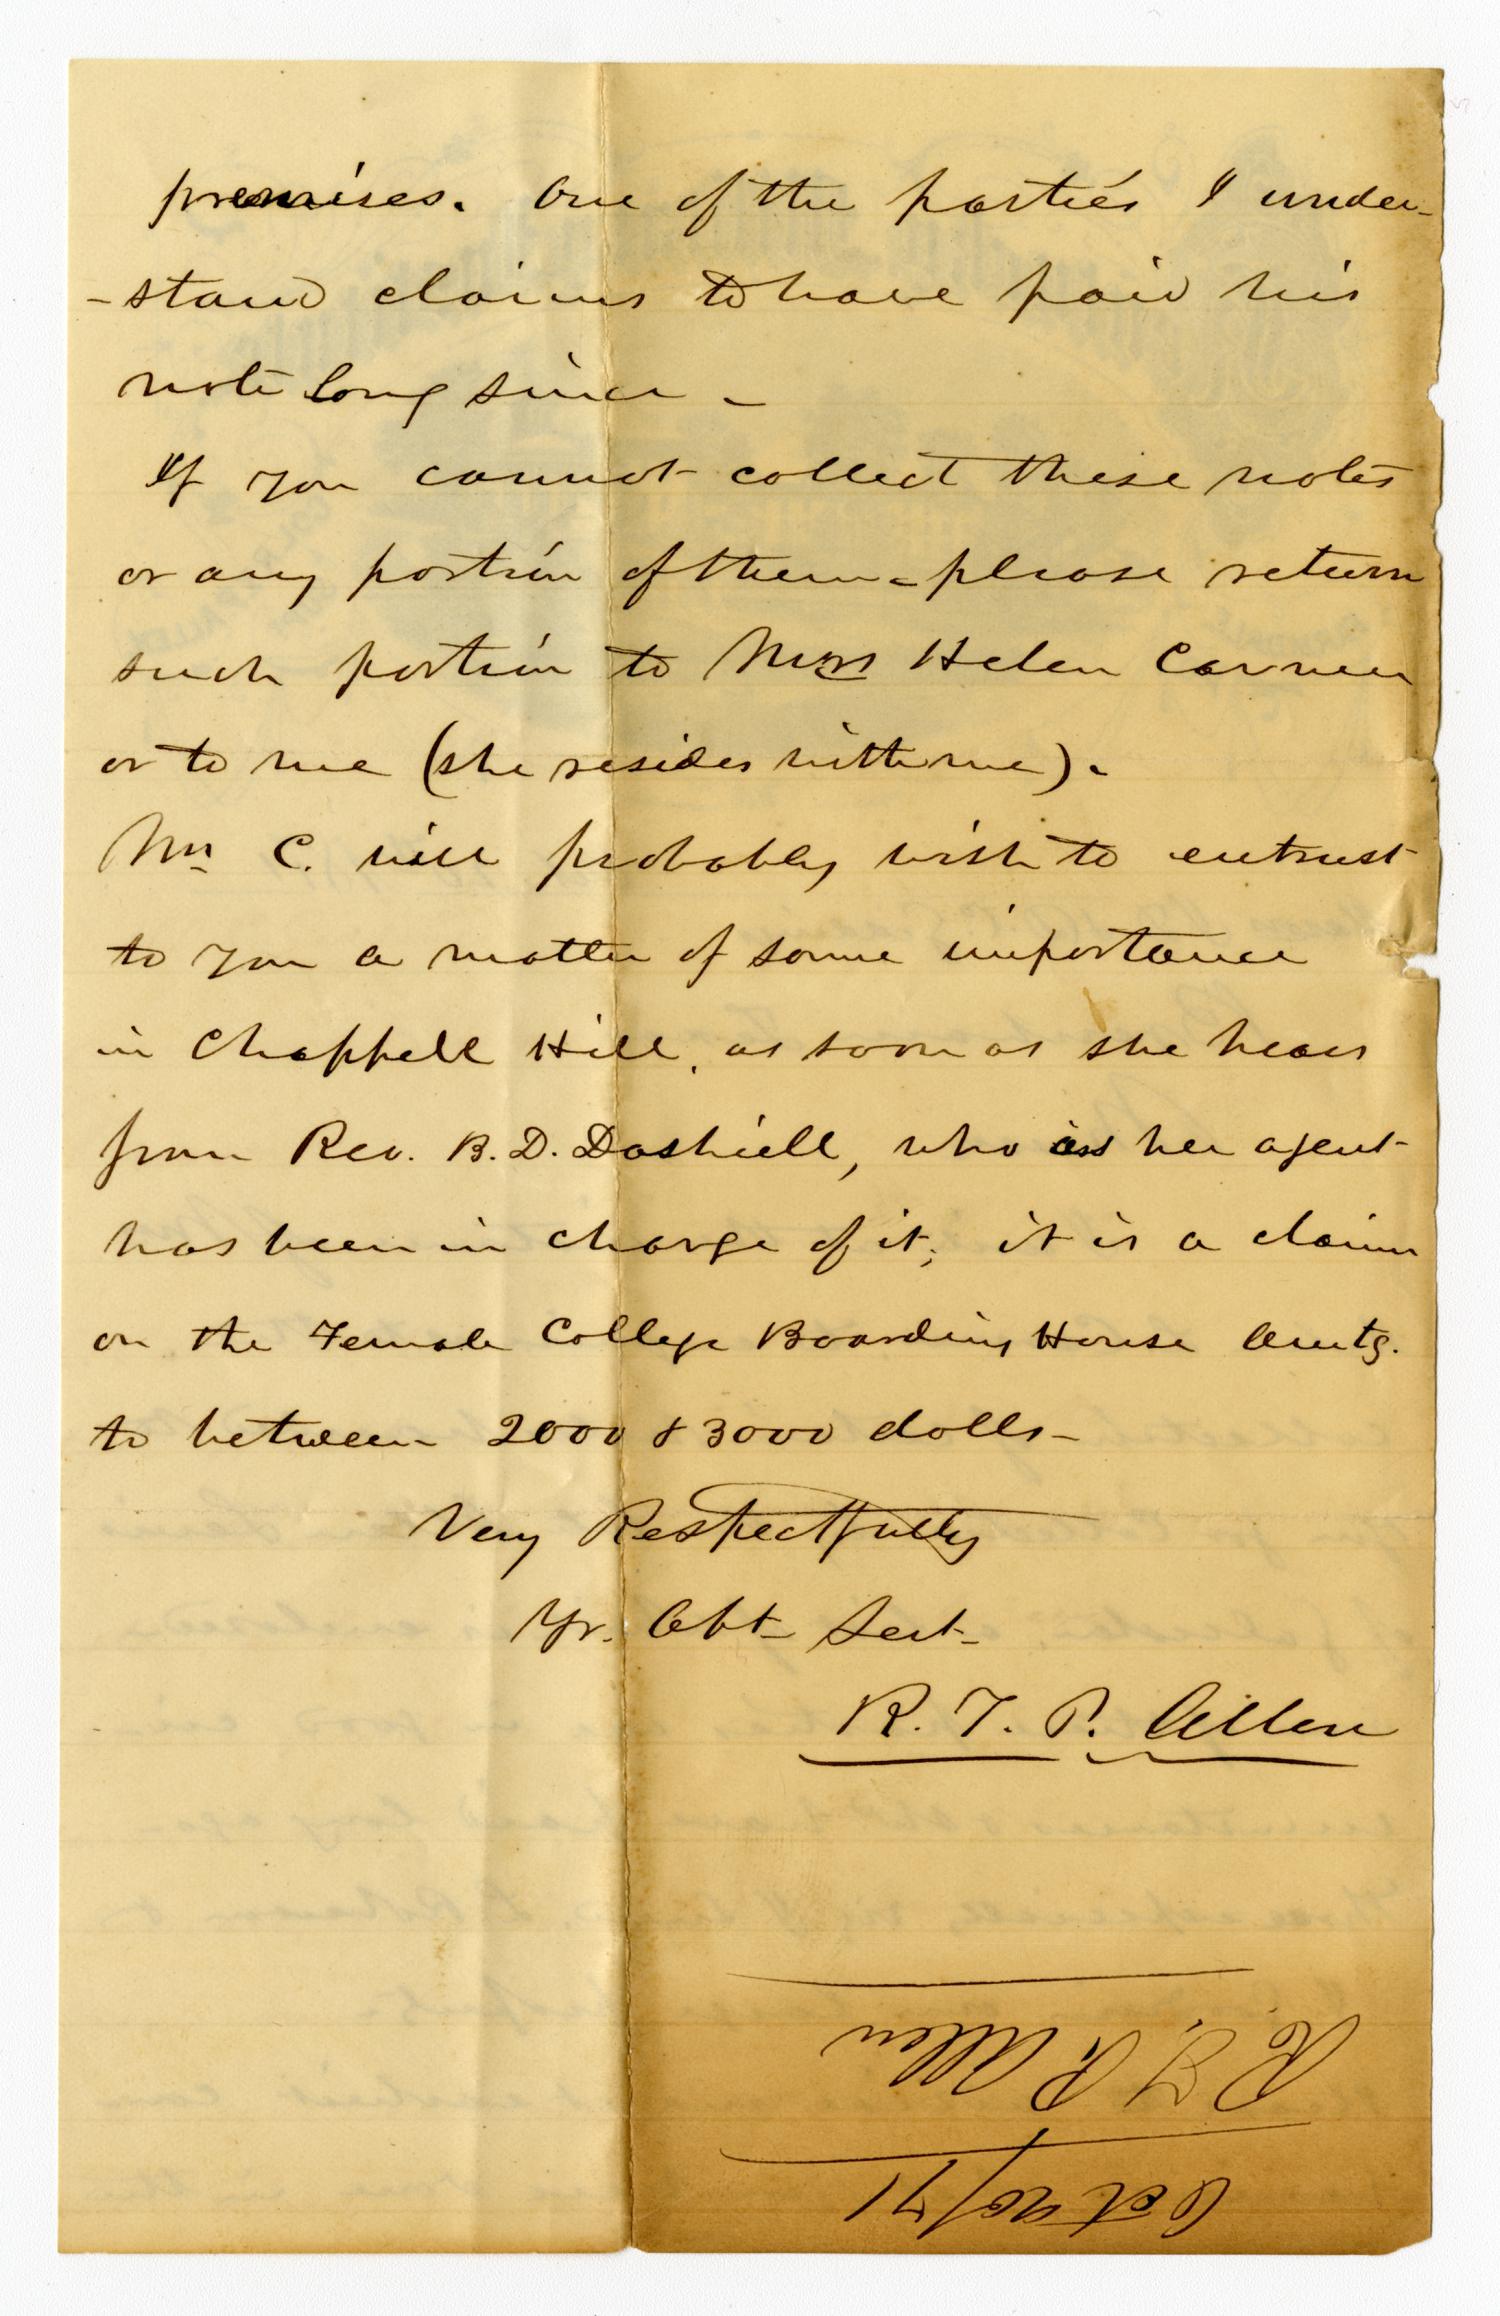 premises. One of the parties I under-
-stand claims to have paid his
note long since -
If you cannot collect these notes
or any portion of them - please return
such portion to Mrs Helen
or to me (she resides with me).
Mrs C. will probably wish to entrust
to you a matter of some importance
in Chappell Hill, as soon as she hears
from Rev. B. D. Dashiell, who as her agent
has been in charge of it; it is a claim
on the Female College Boarding House Amtg.
to between 2000 & 3000 dolls-
Very Respectfully
Yr. Obt Servt-
R. T. P. Allen
R. T. P. Allen
Oct 20/71